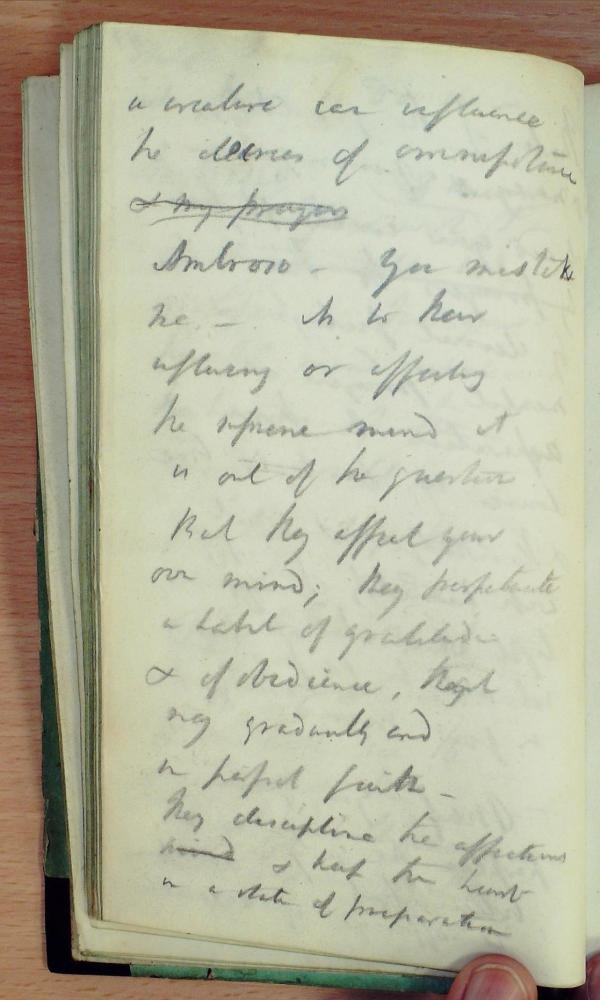 a creature can influence
the decrees of omnipotence
& my prayers
Ambrosio - You mistake
me - As to their
influencing or affecting
the supreme mind it
is out of the question
But they affect your
own mind; they perpetuate
a habit of gratitude
& of obedience, that
may gradually end
in perfect faith -
they discipline the affections
mind & keep the heart
in a state of preparation